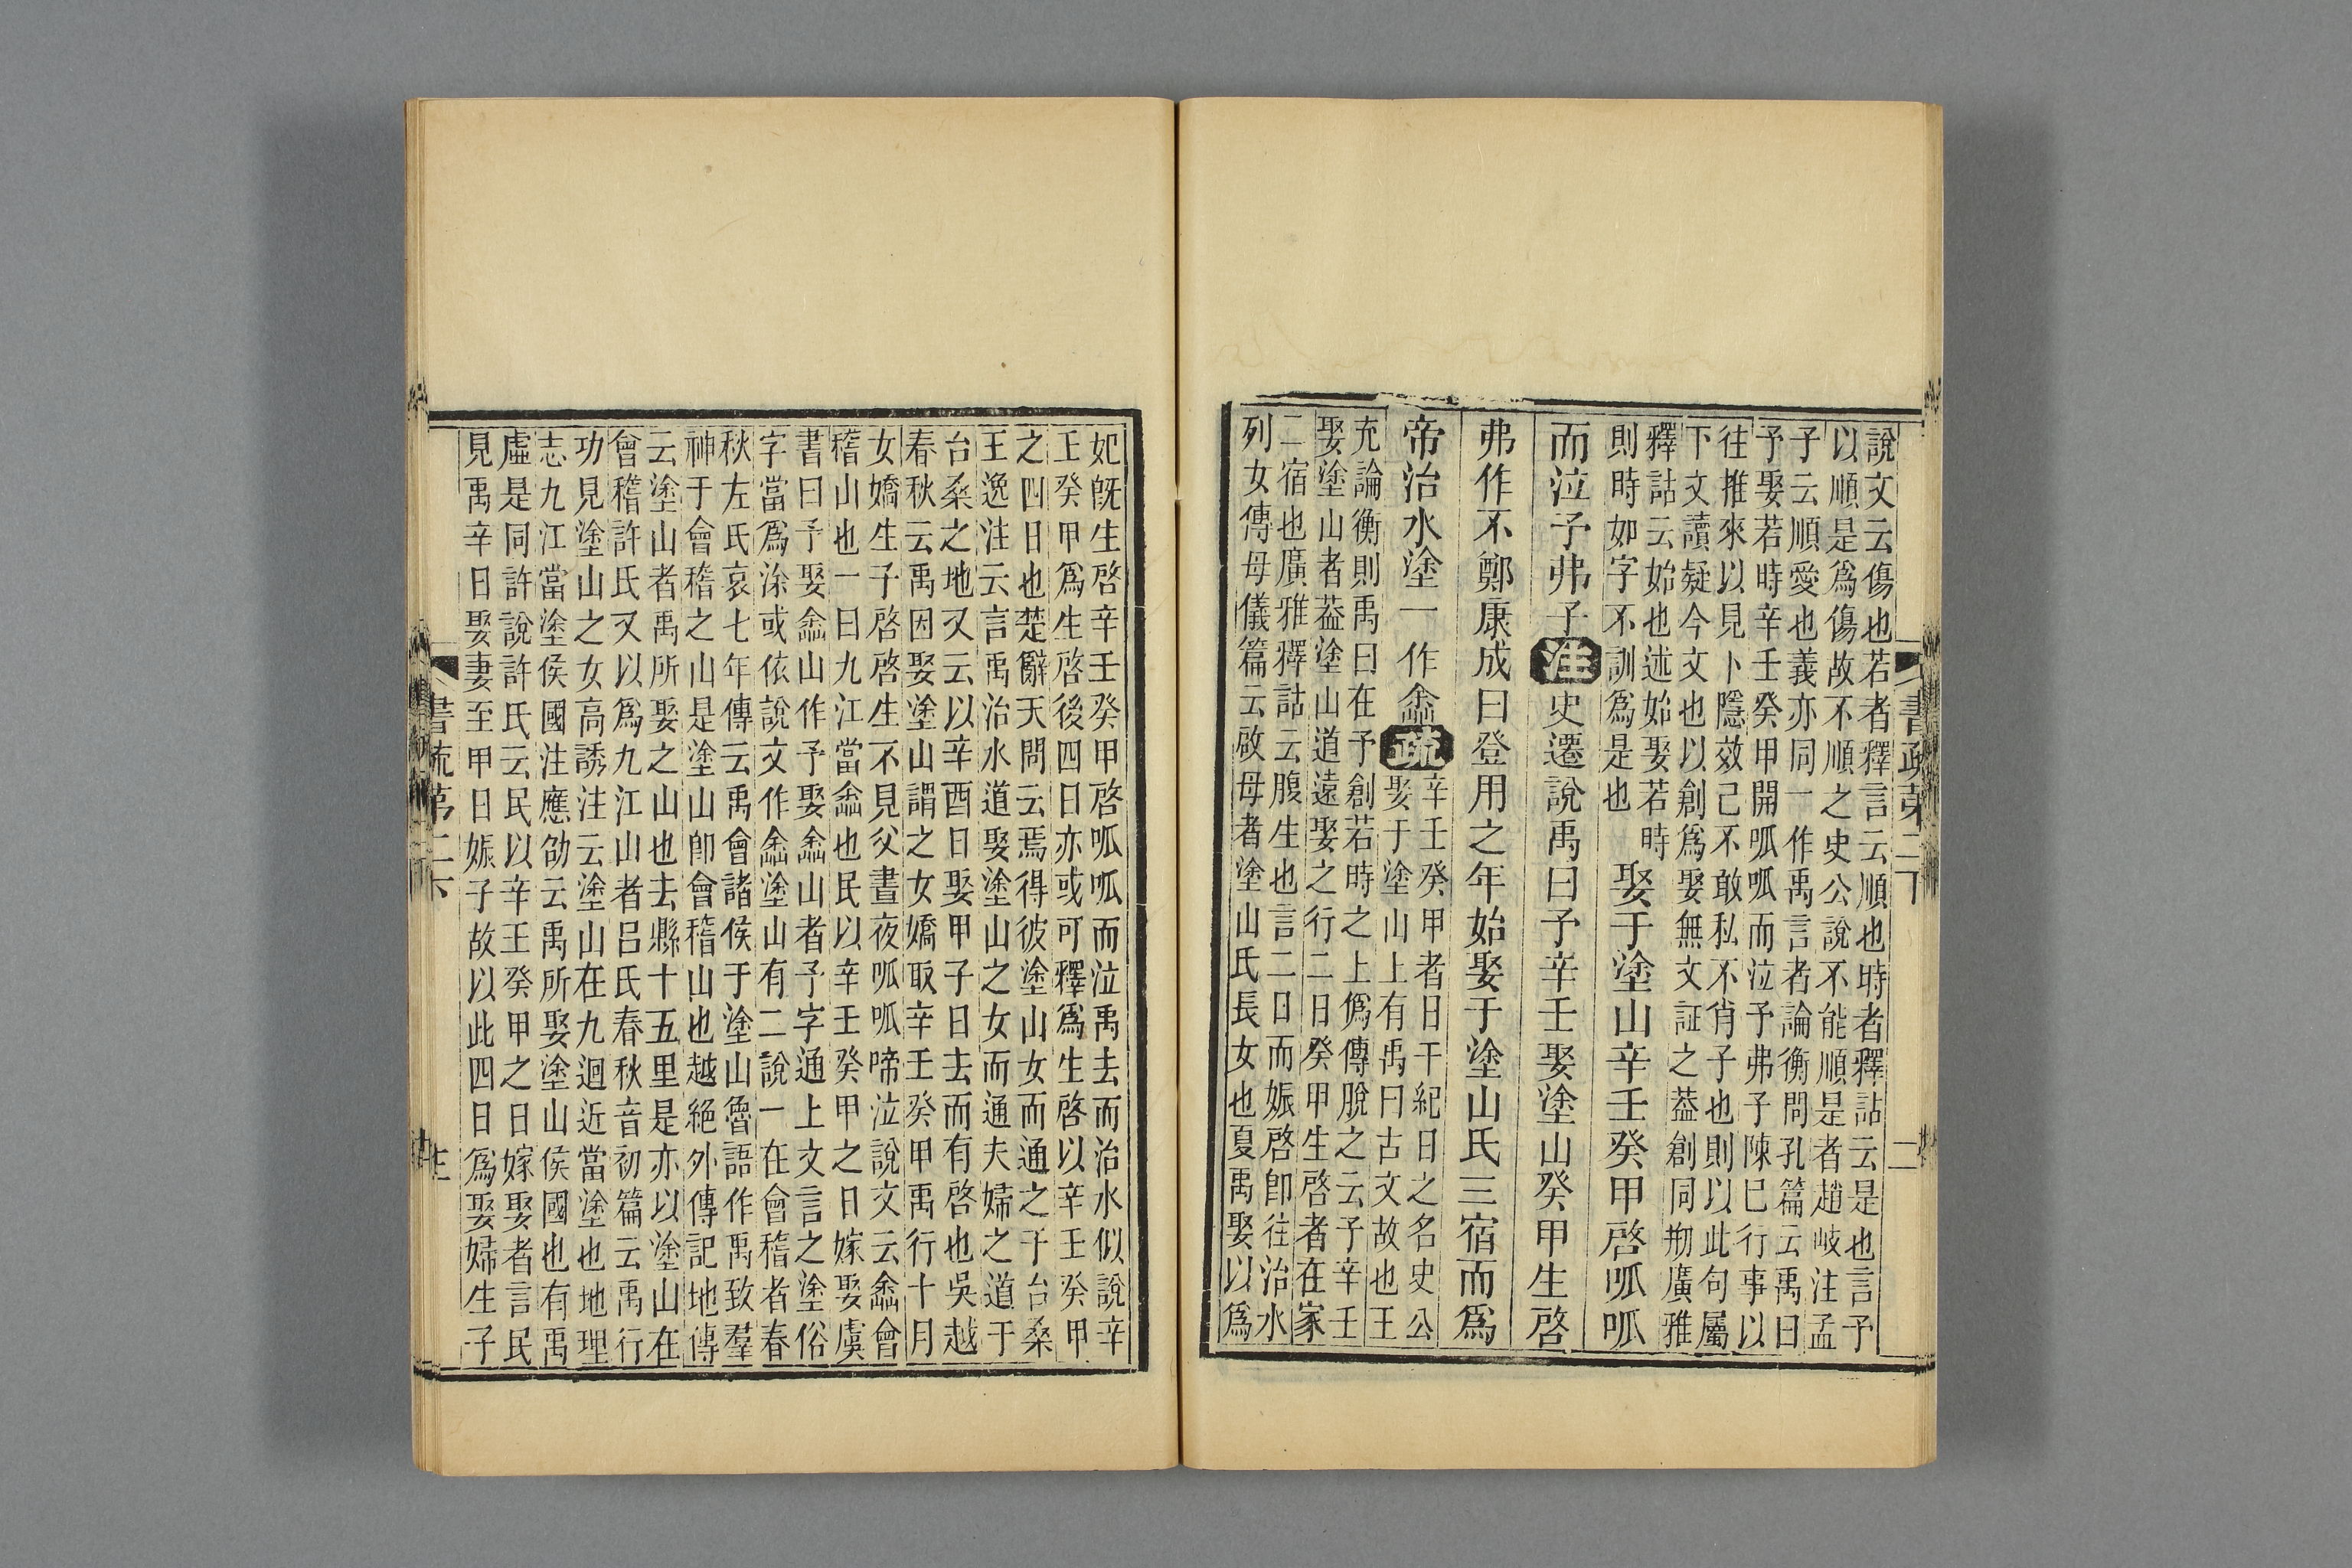 說文云傷也若者釋言云順也時者釋詁云是也言予
以順是爲傷故不順之史公說不能順是者趙岐注孟
子云順愛也義亦同一作禹言者論衡問孔篇云禹曰
予娶若時辛壬癸甲開呱呱而泣予弗子陳已行事以
往推來以見卜隱效己不敢私不肖子也則以此句屬
下文讀疑今文也以創爲娶無文証之葢創同刱廣雅
釋詁云始也述始娶若時
則時如字不訓爲是也
娶于塗山辛壬癸甲啓呱呱
而泣予弗子注史遷說禹曰予辛壬娶塗山癸甲生啓
弗作不鄭康成曰登用之年始娶于塗山氏三宿而爲
帝治水塗一作嵞疏
辛壬癸甲者日干紀日之名史公
娶于塗山上有禹曰古文故也王
充論衡則禹曰在予創若時之上僞傳脫之云予辛壬
娶塗山者葢塗山道遠娶之行二日癸甲生啓者在家
二宿也廣雅釋詁云腹生也言二日而娠啓卽往治水
列女傳母儀篇云啟母者塗山氏長女也夏禹娶以爲
書疏第二下
二
妃旣生啓辛壬癸甲啓呱呱而泣禹去而治水似說辛
壬癸甲爲生啓後四日亦或可釋爲生啓以辛壬癸甲
之四日也楚辭天問云焉得彼塗山女而通之于台桑
王逸注云言禹治水道娶塗山之女而通夫婦之道于
台桑之地又云以辛酉日娶甲子日去而有啓也吳越
春秋云禹因娶塗山謂之女嬌取辛壬癸甲禹行十月
女嬌生子啓啓生不見父晝夜呱呱啼泣說文云嵞會
稽山也一曰九江當嵞也民以辛壬癸甲之日嫁娶虞
書曰予娶嵞山作予娶嵞山者予字通上文言之塗俗
字當爲涂或依說文作嵞塗山有二說一在會稽者春
秋左氏哀七年傳云禹會諸侯于塗山魯語作禹致羣
神于會稽之山是塗山卽會稽山也越絕外傳記地傳
云塗山者禹所娶之山也去縣十五里是亦以塗山在
會稽許氏又以爲九江山者呂氏春秋音初篇云禹行
功見塗山之女高誘注云塗山在九迴近當塗也地理
志九江當塗侯國注應劭云禹所娶塗山侯國也有禹
虛是同許說許氏云民以辛壬癸甲之日嫁娶者言民
見禹辛日娶妻至甲日娠子故以此四日爲娶婦生子
書疏第二下